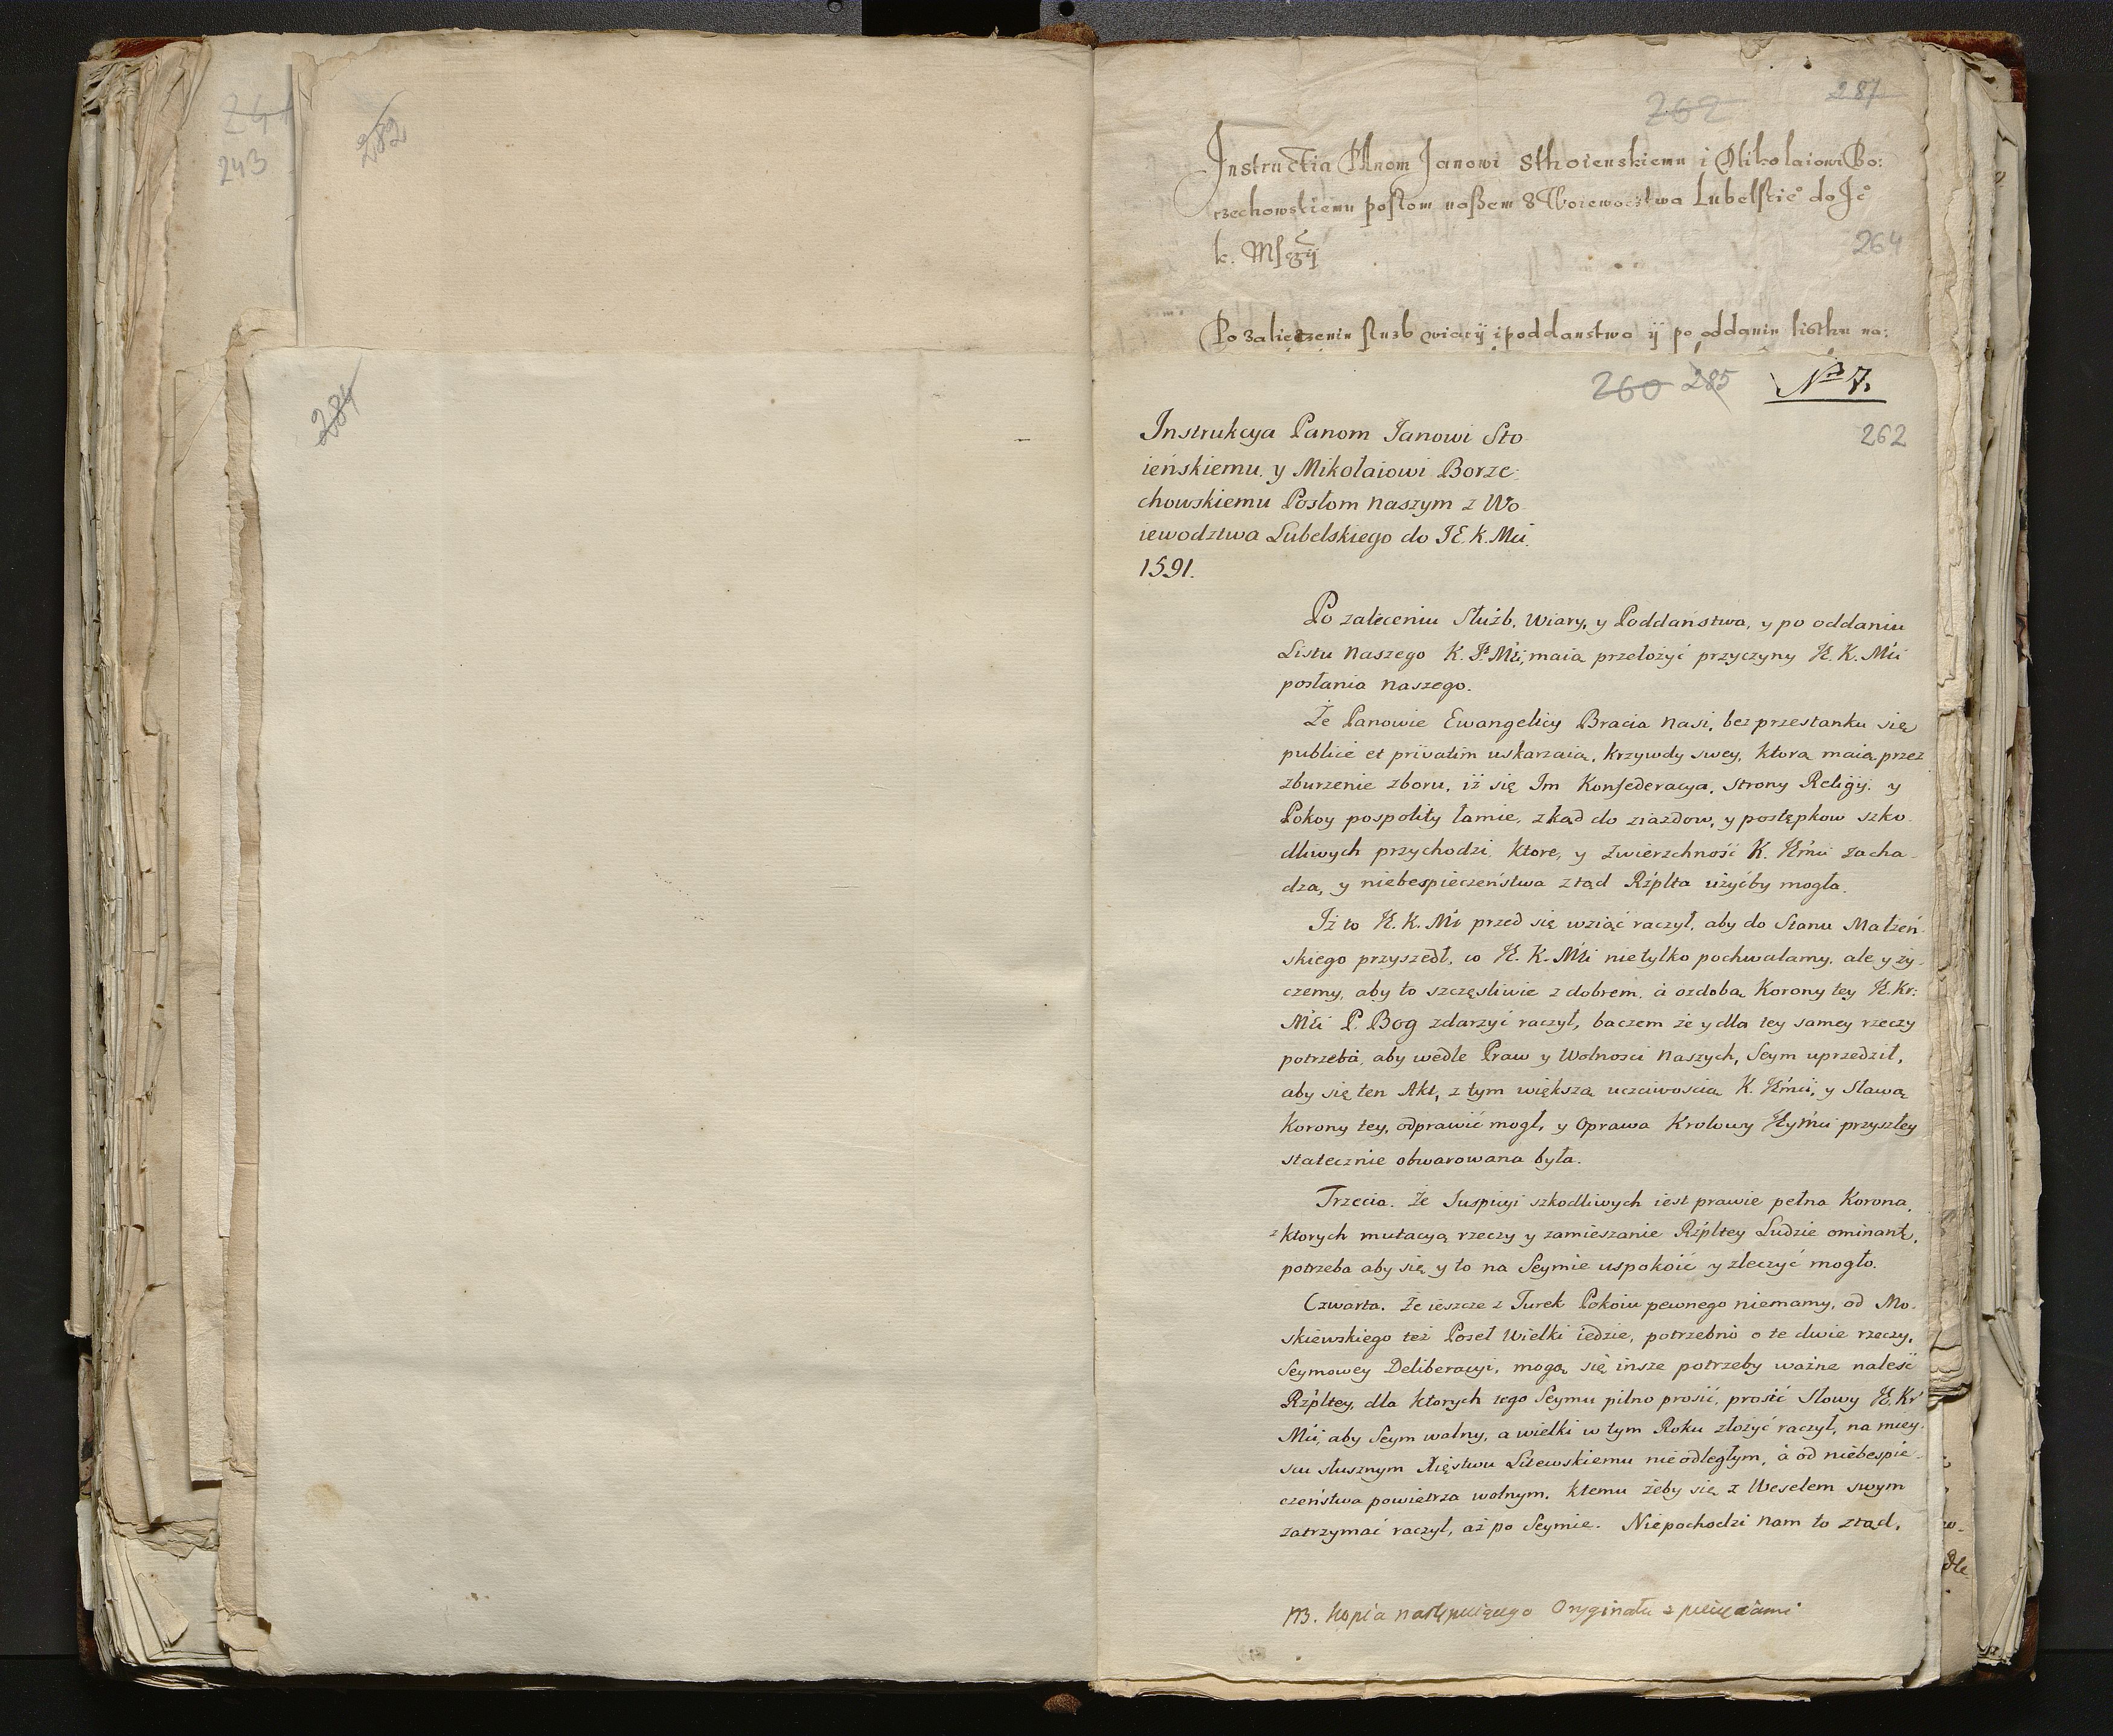 241
243
282
284
262
287
Instructia PAnom Janowi Sthoienskiemu i Mikolaiowi Bo:
rzechowskiemu posłom naszem z Woiewodstwa Lubelskie° do Je°
k. Msczÿ
264
Po zalieczeniu służb wiarÿ i poddanstwa ÿ po oddaniu listhu na:
260 285 Nro 7.
Instrukcya Panom Janowi Sto-
ieńskiemu, y Mikołaiowi Borze-
chowskiemu Posłom naszym z Wo-
iewodztwa Lubelskiego do JE. K. Mci
1591.
262
Po zaleceniu Służb, Wiary, y Poddaństwa, y po oddaniu
Listu Naszego K. Je Mći, maią przełożyć przyczyny JE. K. Mći
posłania naszego.
Że Panowie Ewangelicy Bracia Nasi, bez przestanku się
publicè et privatim uskarzaią, Krzywdy swey, ktorą maią przez
zburzenie zboru, iż się Im Konfederacya, strony Religij, y
Pokoy pospolity łamie, zkąd do ziazdow, y postępkow szko-
dliwych przychodzi, ktore, y zwierzchność K. JEmći zacha-
dza, y niebespieczeństwa ztąd Rżplta użyćby mogła.
Iż to JE. K. Mć przed się wziąć raczył, aby do Stanu Małżeń-
skiego przyszedł, co JE. K. Mći nie tylko pochwalamy, ale y ży-
czemy, aby to szczęsliwie z dobrem, à ozdobą Korony tey JE. Kr:
Mći P. Bog zdarzyć raczył, baczem że y dla tey samey rzeczy
potrzeba, aby wedle Praw y Wolnosci Naszych, Seym uprzedził,
aby się ten Akt, z tym większą uczciwoscią K. JEmći, y Sławą
Korony tey, odprawić mogł, y Oprawa Krolowy JEymći przyszłey
statecznie obwarowana była.
Trzecia. Że Suspicyi szkodliwych iest prawie pełna Korona,
z ktorych mutacyą rzeczy y zamieszanie Rżpltey Ludzie ominant,
potrzeba aby się y to na Seymie uspokoić y zleczyć mogło.
Czwarta. Że ieszcze z Turek Pokoiu pewnego niemamy, od Mo-
skiewskiego też Poseł Wielki iedzie, potrzebno o te dwie rzeczy,
Seymowey Deliberacyi, mogą się insze potrzeby ważne naleść
Rżpltey, dla ktorych tego Seymu pilno prosić, prosić Słowy JE. Kr
Mći, aby Seym walny, a wielki w tym Roku złożyć raczył, na miey-
scu słusznym Xięstwu Litewskiemu nieodległym, à od niebespie-
czeństwa powietrza wolnym. Ktemu żeby się z Weselem swym
zatrzymać raczył, aż po Seymie. Niepochodzi Nam to ztąd,
NB. Kopia następuiącego Oryginału z pieczęciami